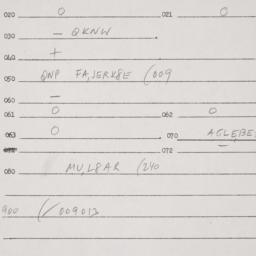 020 0 021 0
030 – QKNW .
040 +
050 QNP FAJERKSE (009
060 –
061 0 062 0
063 0 070 AGLEBE
072 –
080 MULSAR (240
900 (/009013